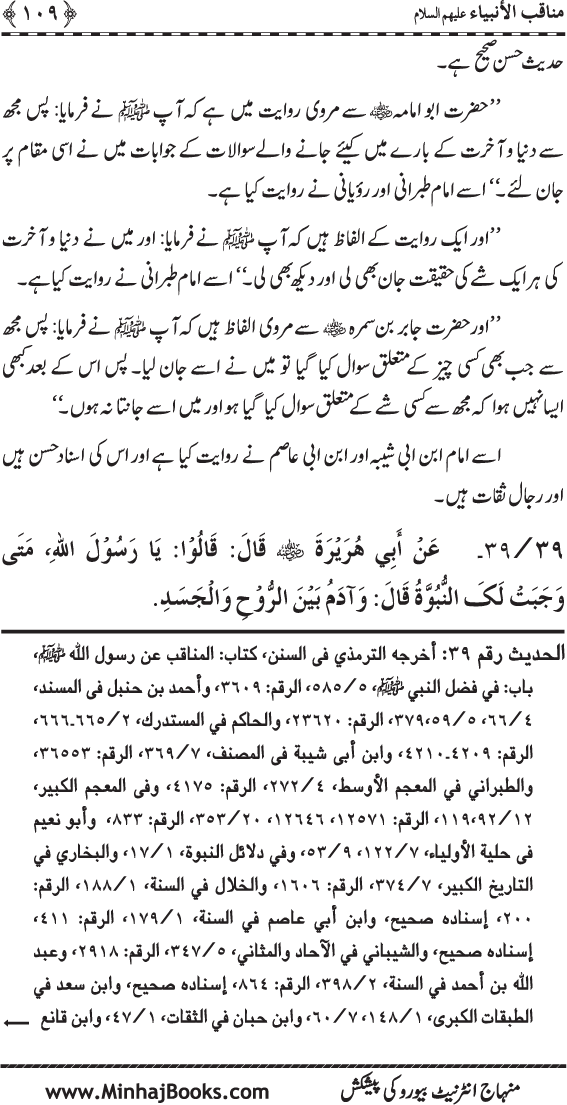 مناقب الأنبياء علیہم السلام ﴿۱۰۹﴾
حدیث حسن صحیح ہے۔
’’حضرت ابو امامہ رضی اللہ عنہ سے مروی روایت میں ہے کہ آپ ﷺ نے فرمایا: پس مجھ
سے دنیا و آخرت کے بارے میں کیئے جانے والے سوالات کے جوابات میں نے اسی مقام پر
جان لئے۔‘‘ اسے امام طبرانی اور رؤیانی نے روایت کیا ہے۔
’’اور ایک روایت کے الفاظ ہیں کہ آپ ﷺ نے فرمایا: اور میں نے دنیا و آخرت
کی ہر ایک شے کی حقیقت جان بھی لی اور دیکھ بھی لی۔‘‘ اسے امام طبرانی نے روایت کیا ہے۔
’’اور حضرت جابر بن سمرہ رضی اللہ عنہ سے مروی الفاظ ہیں کہ آپ ﷺ نے فرمایا: پس مجھ
سے جب بھی کسی چیز کے متعلق سوال کیا گیا تو میں نے اسے جان لیا۔ پس اس کے بعد کبھی
ایسا نہیں ہوا کہ مجھ سے کسی شے کے متعلق سوال کیا گیا ہو اور میں اسے جانتا نہ ہوں۔‘‘
اسے امام ابن ابی شیبہ اور ابن ابی عاصم نے روایت کیا ہے اور اس کی اسناد حسن ہیں
اور رجال ثقات ہیں۔
۳۹/۳۹۔ عَنْ أَبِي هُرَيْرَةَ رضی اللہ عنہ قَالَ: قَالُوْا: يَا رَسُوْلَ اللهِ، مَتَى
وَجَبَتْ لَکَ النُّبُوَّةُ قَالَ: وَآدَمُ بَيْنَ الرُّوْحِ وَالْجَسَدِ.
الحديث رقم ۳۹: أخرجه الترمذی فی السنن، کتاب: المناقب عن رسول الله ﷺ،
باب: في فضل النبي ﷺ، ۵/۵۸۵، الرقم: ۳۶۰۹، وأحمد بن حنبل فی المسند،
۴/۶۶، ۵/۵۹،۳۷۹، الرقم: ۲۳۶۲۰، والحاکم في المستدرک، ۲/۶۶۵۔۶۶۶،
الرقم: ۴۲۰۹۔۴۲۱۰، وابن أبی شيبة فی المصنف، ۷/۳۶۹، الرقم: ۳۶۵۵۳،
والطبراني في المعجم الأوسط، ۴/۲۷۲، الرقم: ۴۱۷۵، وفی المعجم الکبير،
۱۲/۹۲،۱۱۹، الرقم: ۱۲۵۷۱، ۱۲۶۴۶، ۲۰/۳۵۳، الرقم: ۸۳۳، وأبو نعيم
فی حلية الأولياء، ۷/۱۲۲، ۹/۵۳، وفي دلائل النبوة، ۱/۱۷، والبخاري في
التاريخ الکبير، ۷/۳۷۴، الرقم: ۱۶۰۶، والخلال في السنة، ۱/۱۸۸، الرقم:
۲۰۰، إسناده صحيح، وابن أبي عاصم في السنة، ۱/۱۷۹، الرقم: ۴۱۱،
إسناده صحيح، والشيباني في الآحاد والمثاني، ۵/۳۴۷، الرقم: ۲۹۱۸، وعبد
الله بن أحمد في السنة، ۲/۳۹۸، الرقم: ۸۶۴، إسناده صحيح، وابن سعد في
الطبقات الکبری، ۱/۱۴۸، ۷/۶۰، وابن حبان في الثقات، ۱/۴۷، وابن قانع
منہاج انٹرنیٹ بیورو کی پیشکش www.MinhajBooks.com